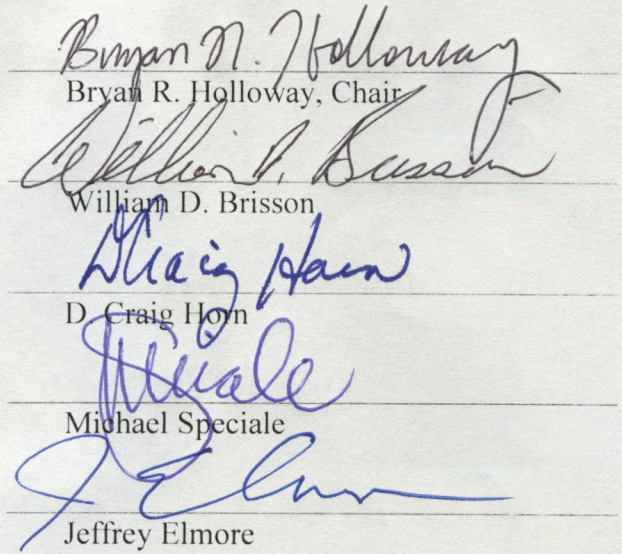 Bryan R. Holloway
Bryan R. Holloway, Chair
William D. Brisson
William D. Brisson
D Craig Horn
D. Craig Horn
Michael Speciale
J Elmore
Jeffrey Elmore